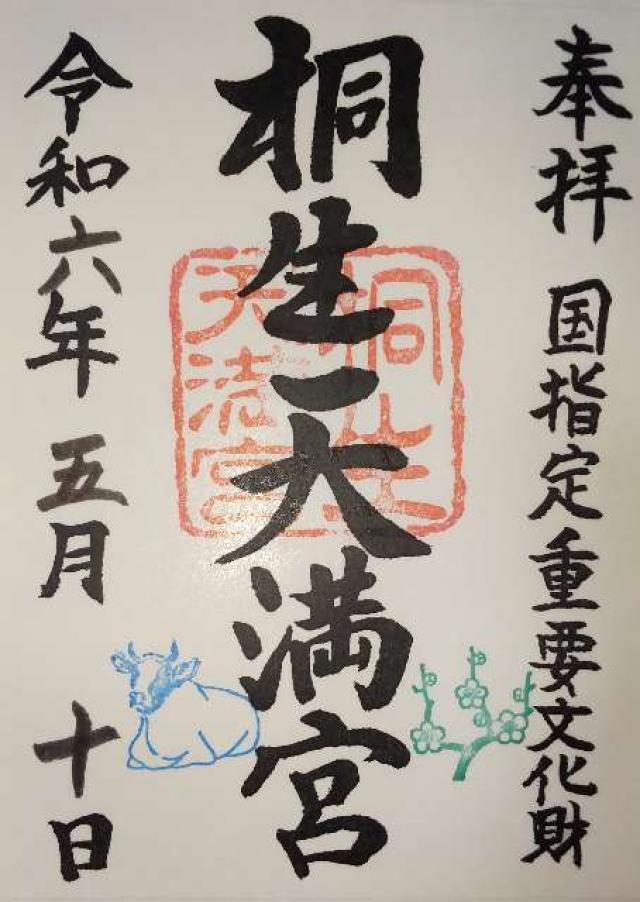 奉拝 国指定重要文化財
桐生天満宮
桐生
天満宮
令和六年 五月 十日